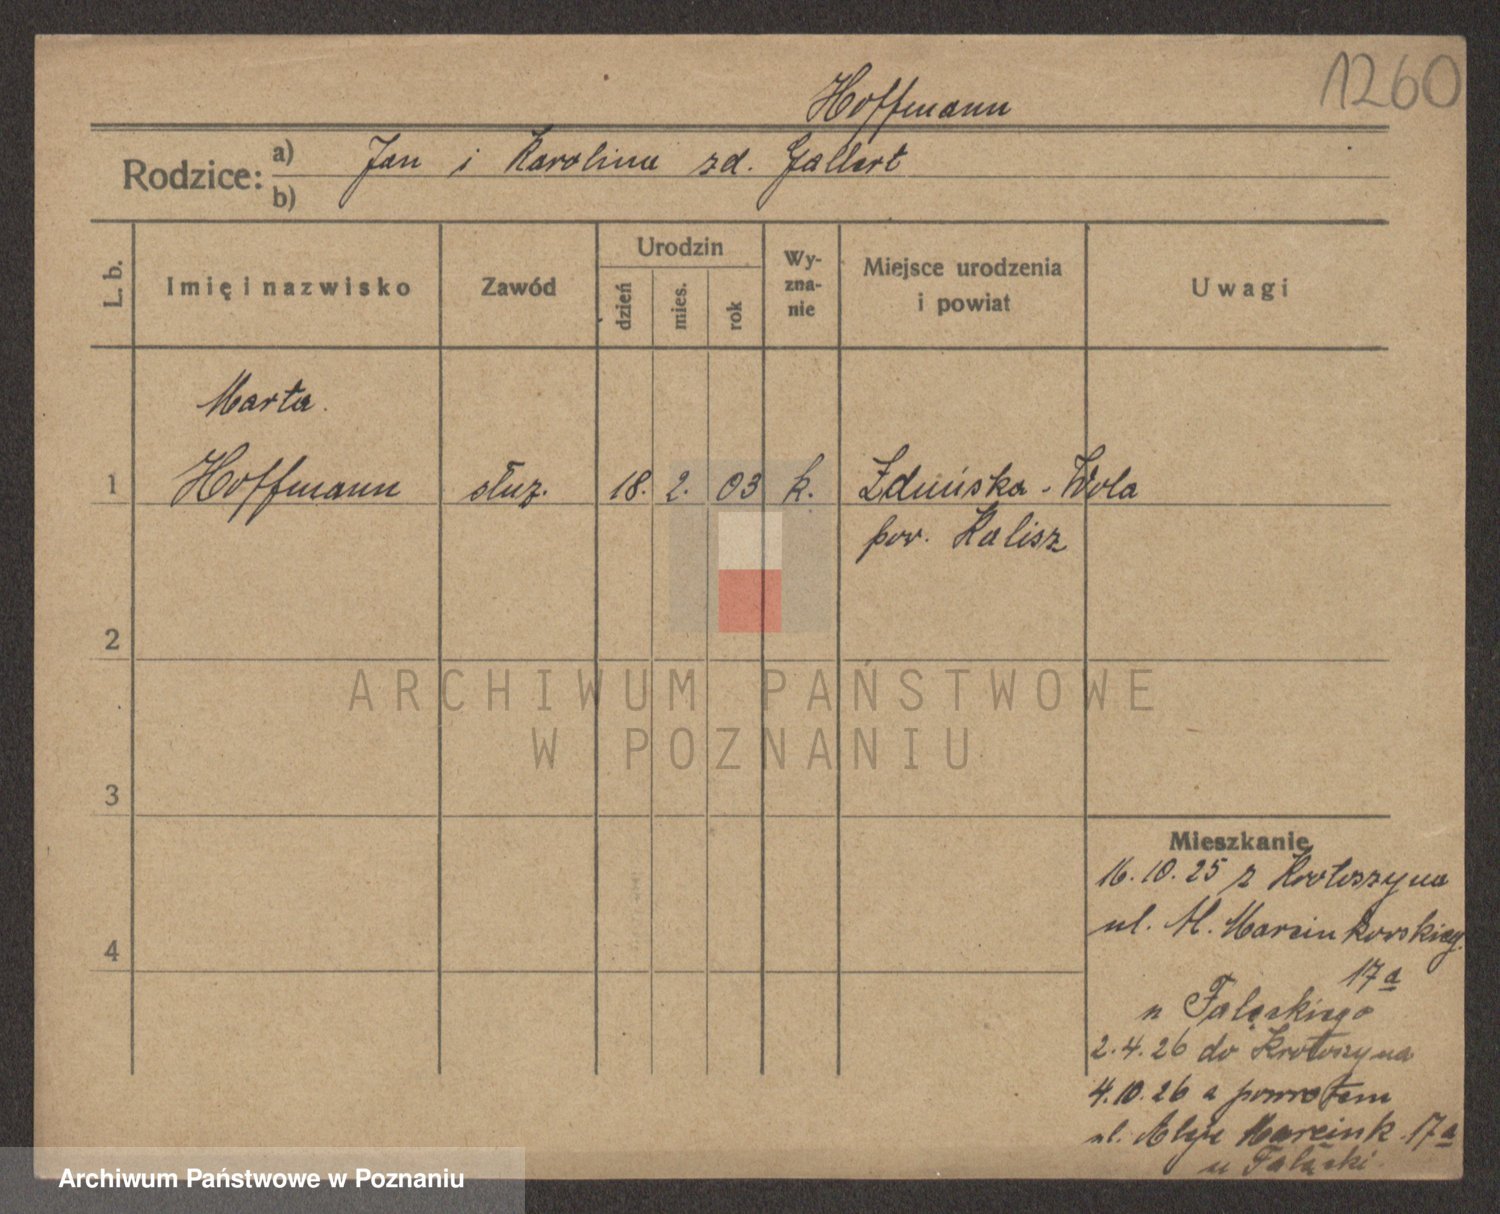 1260
Hoffmann
Rodzice: a) Jan i Karolina zd. Gallert
b)
L. b. Imię i nazwisko Zawód Urodzin dzień mies. rok Wyzna-nie Miejsce urodzenia i powiat Uwagi
Marta
1 Hoffmann służ. 18. 2. 03 k. Zduńska-Wola
pow. Kalisz
2
ARCHIWUM PAŃSTWOWE
W POZNANIU
3
Mieszkanie
16.10.25 z Krotoszyna
ul. Al. Marcinkowskieg.
4
17a
u Fałęckiego
2.4.26 do Krotoszyna
4.10.26 z powrotem
ul. Aleje Marcink. 17a
u Fałęcki
Archiwum Państwowe w Poznaniu